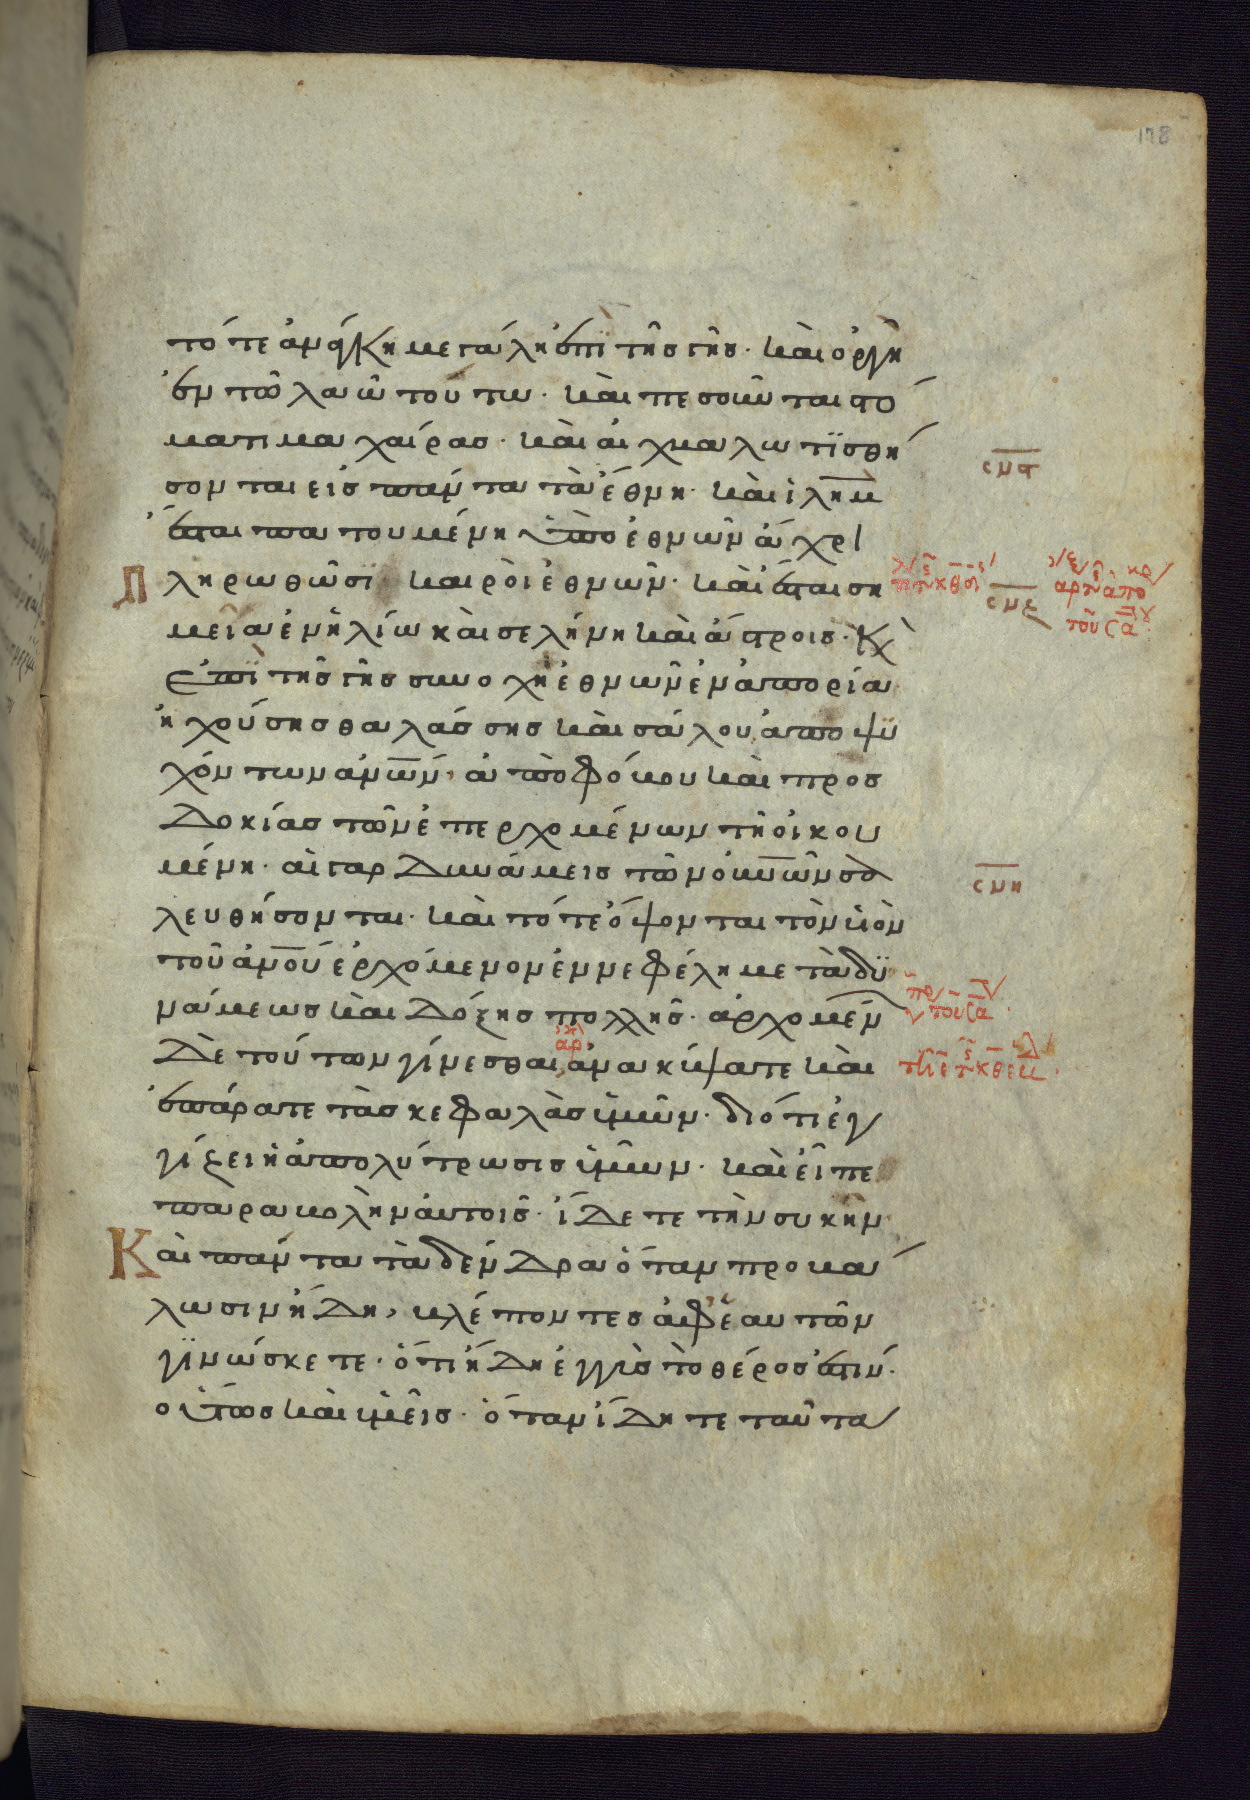 178
τότε ἀνάγκη μεγάλη ἐπὶ τῆς γῆς· καὶ ὀργὴ
ἐν τῶ λαῶ τούτω· καὶ πεσοῦνται στό
ματι μαχαίρας· καὶ αἰχμαλωτϊσθή
σμϛ
σονται εἰς πάντα τὰ ἔθνη· καὶ ἱλημ
ἔσται πατουμένη ὑπὸ ἐθνῶν ἄχρι
πληρωθῶσϊ καιροὶ ἐθνῶν· καὶ ἔσται ση
σμζ
μεῖα ἐν ἡλίω καὶ σελήνη καὶ ἄστροις· κ
ἐπὶ τῆς γῆς συνοχὴ ἐθνῶν ἐν ἀπορία
ἠχούσης θαλάσσης καὶ σάλου ἀποψϋ
χόντων ἀνων· ἀπὸ φόβου καὶ προσ
δοκίας τῶν ἐπερχομένων τῆ οἰκου
μένη· αἱ γὰρ δυνάμεις τῶν οὐνῶν σα
σμη
λευθήσονται· καὶ τότε ὄψονται τὸν υἱὸν
τοῦ ἀνου ἐρχόμενον ἐν νεφέλη μετὰ δϋ
νάμεως καὶ δόξης πολλῆς· ἀρχομέν
δὲ τούτων γίνεσθαι ἀνακύψατε καὶ
αρ
ἐπάρατε τὰς κεφαλὰς ὑμῶν· διότι ἐγ
γίζει ἡ ἀπολύτρωσις ὑμῶν· καὶ εἶπε
παραβολὴν αὐτοῖς· ἴδετε τὴν συκῆν
Καὶ πάντα τὰ δένδρα ὅταν προβά
λωσιν ἤδη, βλέποντες ἀφ' ἑαυτῶν
γϊνώσκετε· ὅτι ἤδη ἐγγὺς τὸ θέρος ἐστιν·
οὕτως καὶ ὑμεῖς· ὅταν ἴδητε ταῦτα